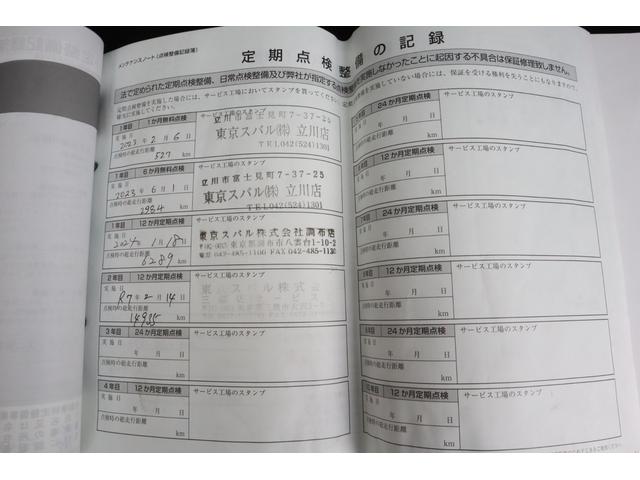 メンテナンスノート(点検整備記録簿)
定期点検整備の記録
法で定められた定期点検整備、日常点検整備及び弊社が指定する点検整備を実施しなかったことに起因する不具合は保証修理致しません。
定期点検整備を実施した場合には、サービス工場においてスタンプを貰ってください。
1年目 1か月無料点検
サービス工場のスタンプ
実施日
2023年2月6日
点検時の総走行距離
527 km
立川市富士見町7-37-25
東京スバル㈱ 立川店
TEL042(524)1301
1年目 6か月無料点検
サービス工場のスタンプ
実施日
2023年6月1日
点検時の総走行距離
2984 km
立川市富士見町7-37-25
東京スバル㈱ 立川店
TEL042(524)1301
1年目 12か月定期点検
サービス工場のスタンプ
実施日
2024年1月18日
点検時の総走行距離
6289 km
東京スバル株式会社調布店
東京都調布市八雲台1-10-2
042-485-1100 FAX 042-485-1130
2年目 12か月定期点検
サービス工場のスタンプ
実施日
R7年2月14日
点検時の総走行距離
14935 km
東京スバル株式会社
3年目 24か月定期点検
サービス工場のスタンプ
実施日
年 月 日
点検時の総走行距離
km
4年目 12か月定期点検
サービス工場のスタンプ
実施日
年 月 日
点検時の総走行距離
km
24か月定期点検
サービス工場のスタンプ
年 月 日
点検時の総走行距離
km
12か月定期点検
サービス工場のスタンプ
年 月 日
点検時の総走行距離
km
24か月定期点検
サービス工場のスタンプ
年 月 日
点検時の総走行距離
km
12か月定期点検
サービス工場のスタンプ
年 月 日
点検時の総走行距離
km
24か月定期点検
サービス工場のスタンプ
年 月 日
点検時の総走行距離
km
12か月定期点検
サービス工場のスタンプ
年 月 日
点検時の総走行距離
km